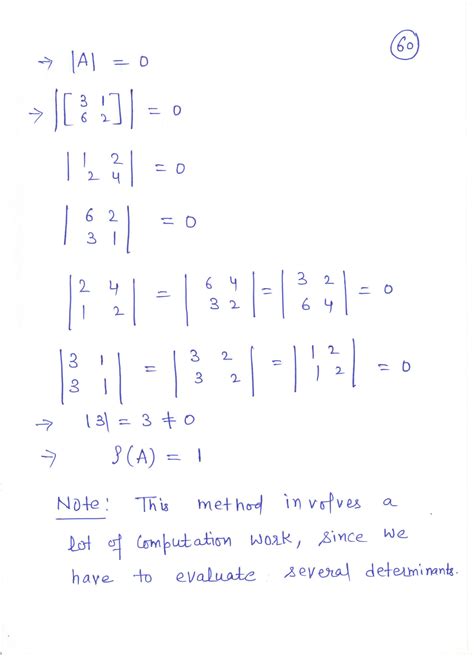 60
→ |A| = 0
→ |[3 1 6 2]| = 0
|1 2 2 4| = 0
|6 2 3 1| = 0
|2 4 1 2| = |6 4 3 2| = |3 2 6 4| = 0
|3 1 3 1| = |3 2 3 2| = |1 2 1 2| = 0
→ |3| = 3 ≠ 0
→ ρ(A) = 1
Note: This method involves a
lot of computation work, since we
have to evaluate several determinants.